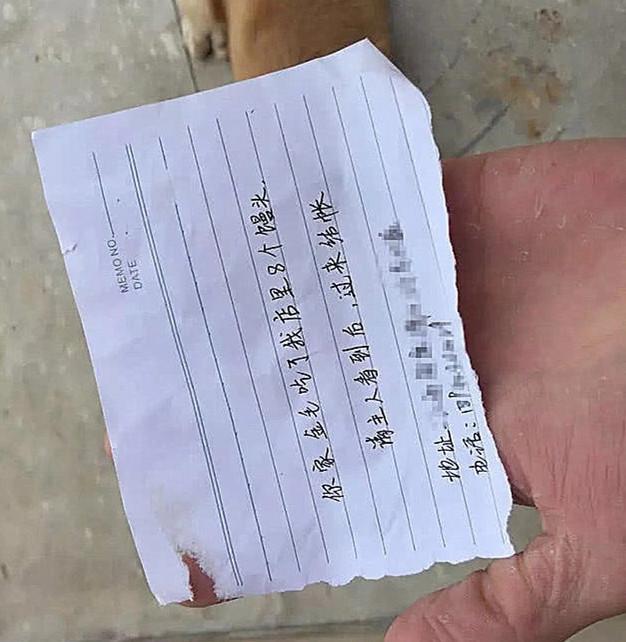 MEMO NO.
DATE
你家金毛吃了我店里8个馒头.
请主人看到后,过来结帐
地址
电话: